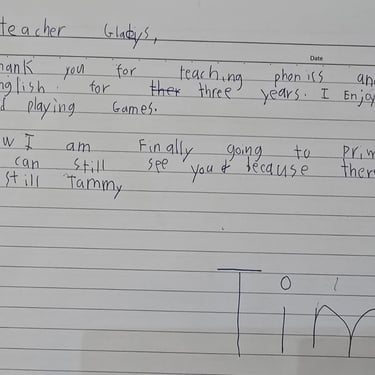 teacher Gladys,
Date
hank you for teaching phonics an
nglish. for ther three years. I Enjoy
d playing Games.
w I am Finally going to Prim
can still see you because ther
still Tammy
Tim